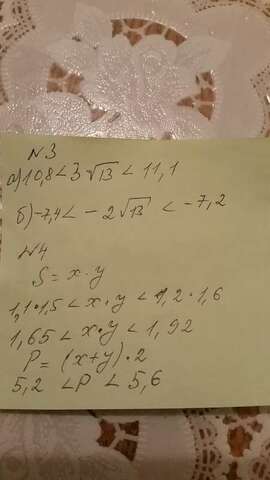 №3
а) 10,8 < 3√13 < 11,1
б) -7,4 < - 2√13 < -7,2
№4
S = x · y
1,1 · 1,5 < x · y < 1,2 · 1,6
1,65 < x · y < 1,92
P = (x+y) · 2
5,2 < P < 5,6